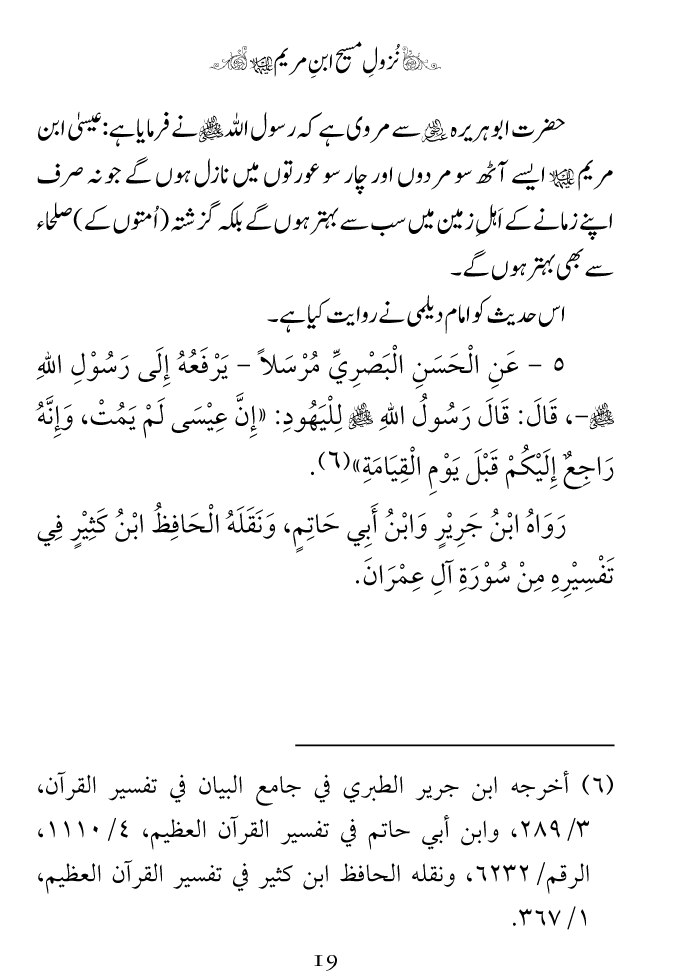 نُزولِ مسیح ابنِ مریم علیہما السلام
حضرت ابو ہریرہ رضی اللہ عنہ سے مروی ہے کہ رسول اللہ ﷺ نے فرمایا ہے: عیسیٰ ابن
مریم علیہما السلام ایسے آٹھ سو مردوں اور چار سو عورتوں میں نازل ہوں گے جو نہ صرف
اپنے زمانے کے اَہلِ زمین میں سب سے بہتر ہوں گے بلکہ گزشتہ (اُمتوں کے) صلحاء
سے بھی بہتر ہوں گے۔
اس حدیث کو امام دیلمی نے روایت کیا ہے۔
٥ - عَنِ الْحَسَنِ الْبَصْرِيِّ مُرْسَلاً - يَرْفَعُهُ إِلَى رَسُوْلِ اللهِ
ﷺ-، قَالَ: قَالَ رَسُولُ اللهِ ﷺ لِلْيَهُودِ: «إِنَّ عِيْسَى لَمْ يَمُتْ، وَإِنَّهُ
رَاجِعٌ إِلَيْكُمْ قَبْلَ يَوْمِ الْقِيَامَةِ»(٦).
رَوَاهُ ابْنُ جَرِيْرٍ وَابْنُ أَبِي حَاتِمٍ، وَنَقَلَهُ الْحَافِظُ ابْنُ كَثِيْرٍ فِي
تَفْسِيْرِهِ مِنْ سُوْرَةِ آلِ عِمْرَانَ.
(٦) أخرجه ابن جرير الطبري في جامع البيان في تفسير القرآن،
٣/ ٢٨٩، وابن أبي حاتم في تفسير القرآن العظيم، ٤/ ١١١٠،
الرقم/ ٦٢٣٢، ونقله الحافظ ابن كثير في تفسير القرآن العظيم،
١/ ٣٦٧.
19